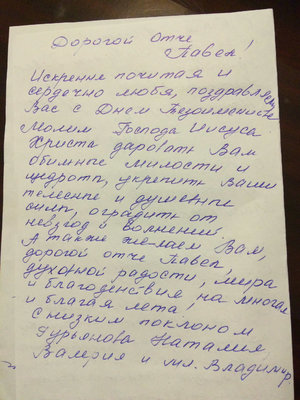 Дорогой отче
Павел!
Искренне почитая и
сердечно любя, поздравляем
Вас с Днем Тезоименитства
Молим Господа Иисуса
Христа даровать Вам
обильные милости и
щедроты, укрепить Ваши
телесные и душевные
силы, оградить от
невзгод и волнений
А также желаем Вам,
дорогой отче Павел,
духовной радости, мира
и благоденствия на многая
и благая лета!
с низким поклоном
Гурьянова Наталия,
Валерия и мл. Владимир